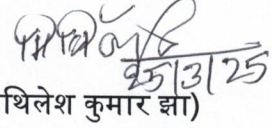 25/3/25
थिलेश कुमार झा)